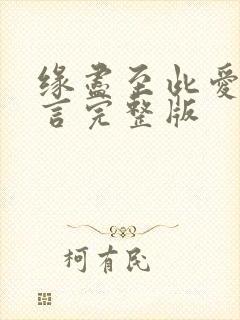 缘尽至此爱
言完整版
柯有民